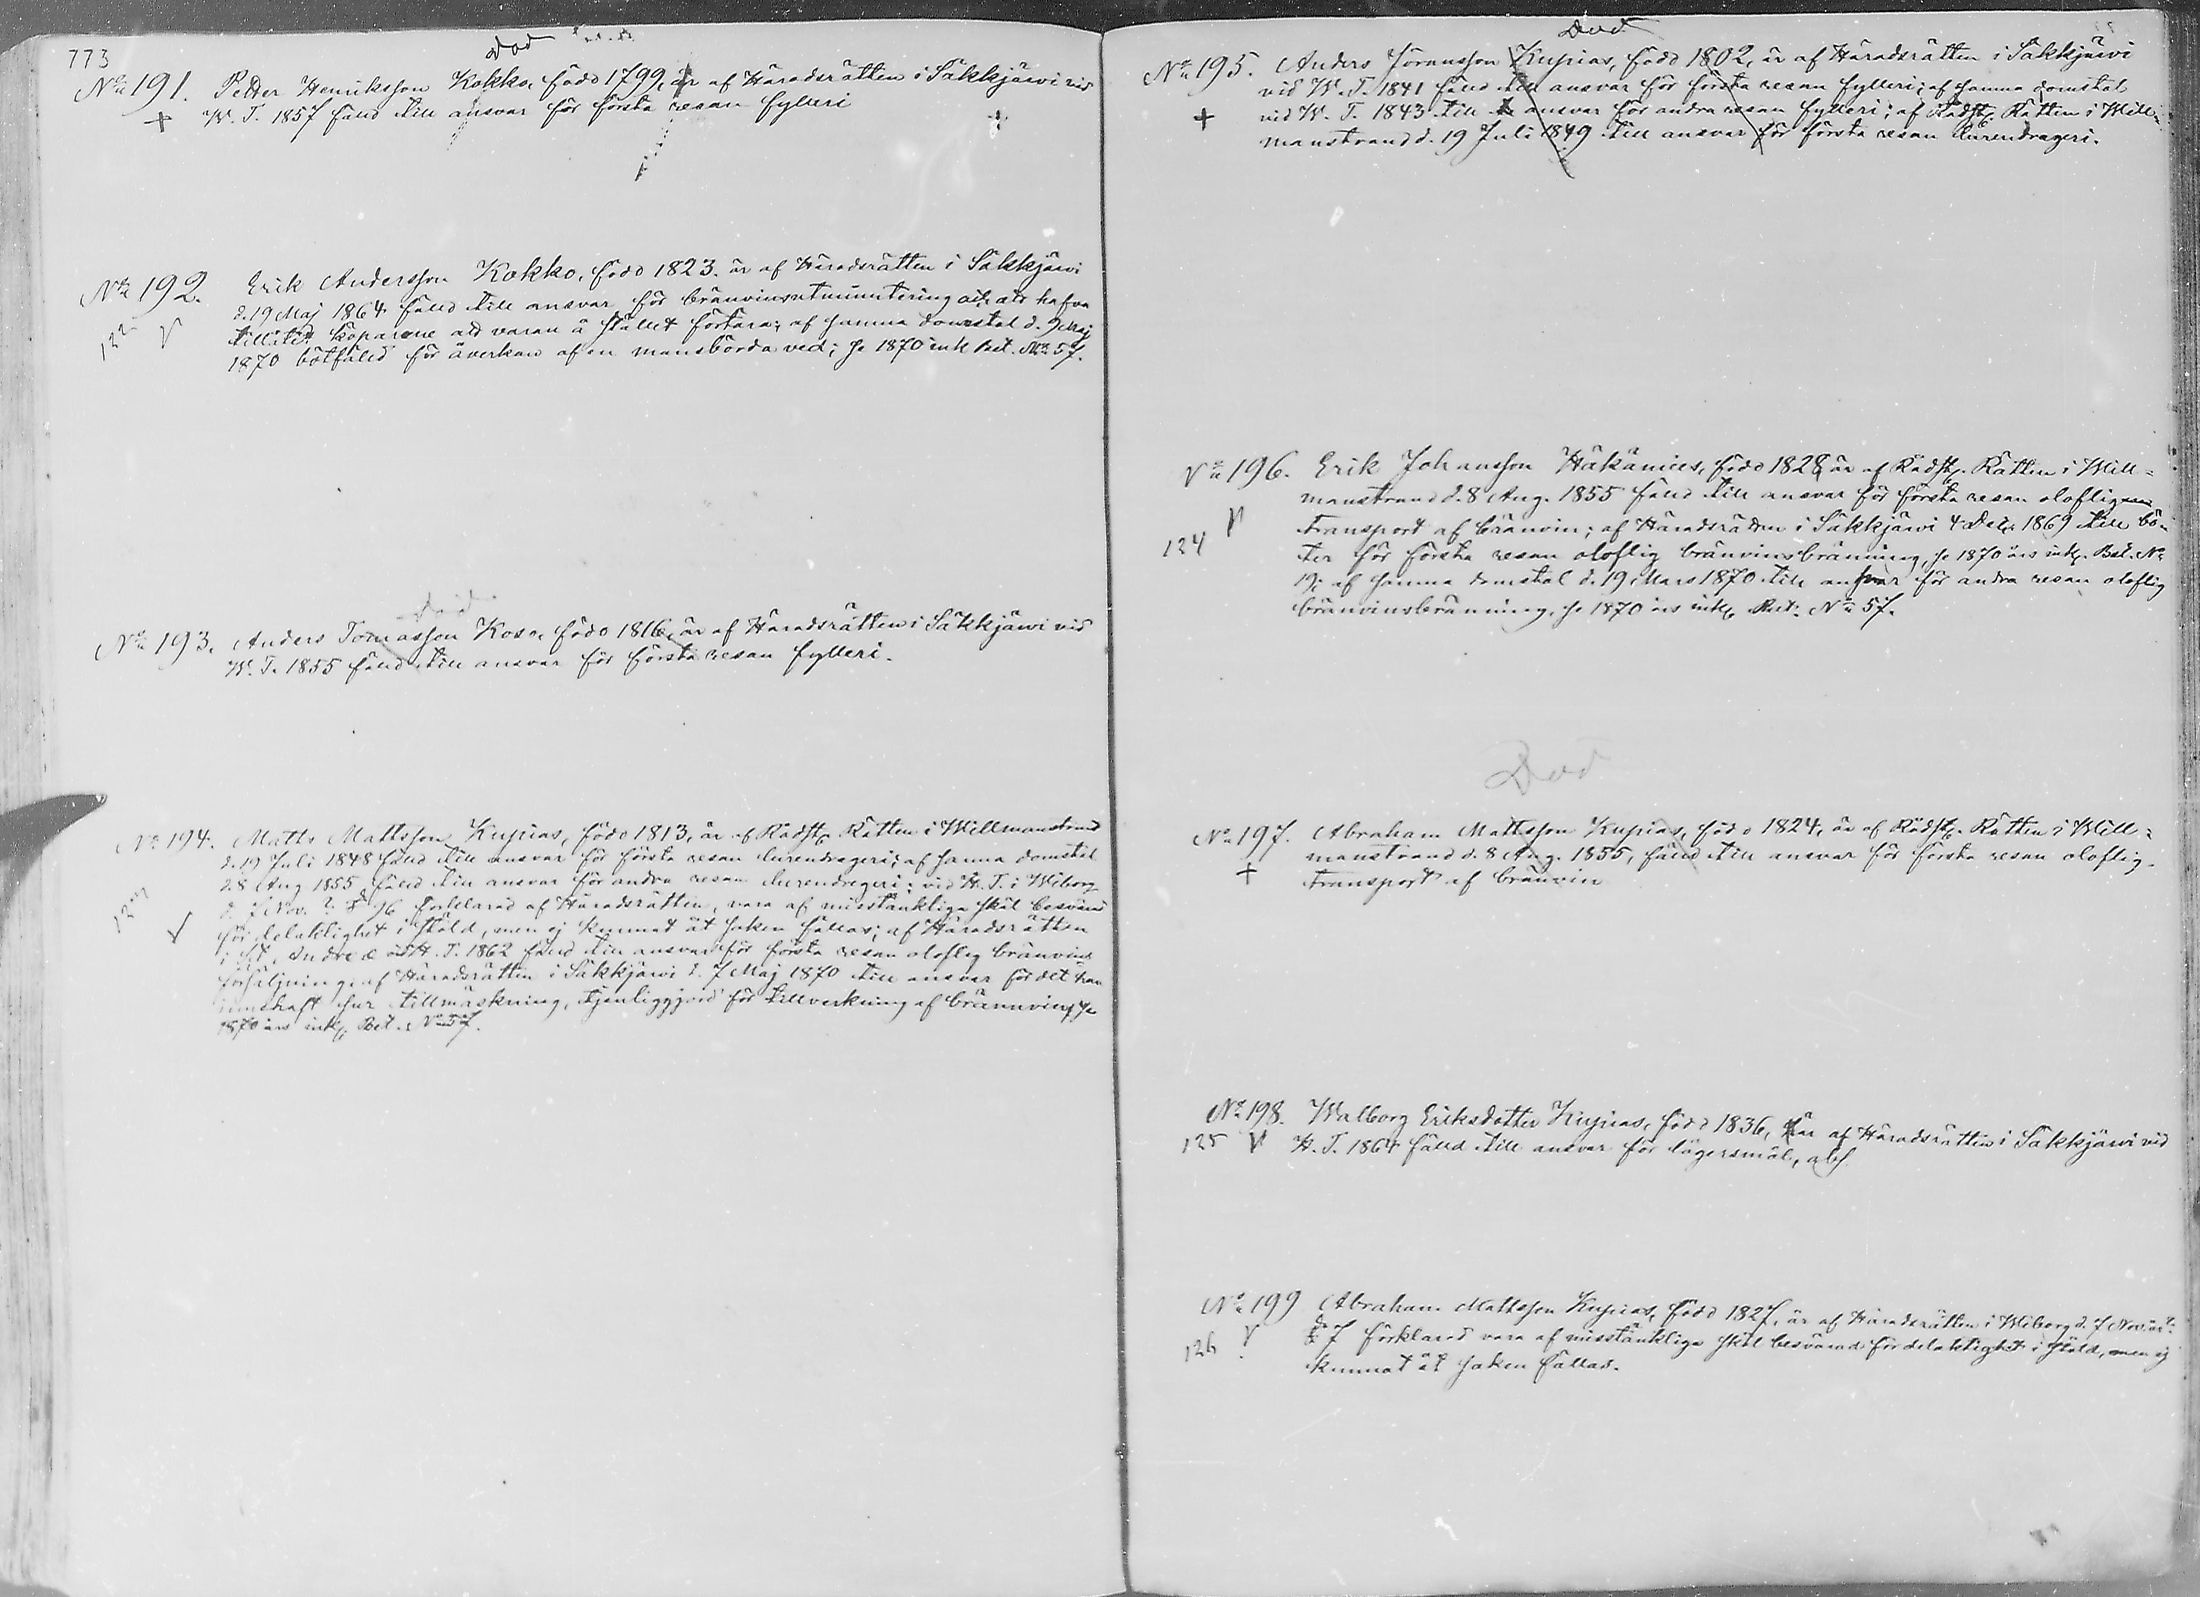 773
Död
No 191. Petter Henriksson Kokko, född 1799, är af Häradsrätten i Säkkjärvi vid
W. T. 1857 fäld till ansvar för första resan fylleri
No 192. Erik Andersson Kokko, född 1823. är af Häradsrätten i Säkkjärvi
d. 19 Maj 1864 fäld till ansvar för bränvinsutminutering och att hafva
tillåtit köparene att varan å stället förtära; af samma domstol d. 9 Maj
122
1870 botfäld för åverkan af en mansbörda ved; se 1870 ink Bet. No 57.
Död
No 193. Anders Tomasson Koso, född 1816, är af Häradsrätten i Säkkjärvi vid
W. T. 1855 fäld till ansvar för första resan fylleri.
No 194. Matts Mattsson Kupias, född 1813, är af Rådstu Rätten i Willmanstrand
d. 19 Juli 1848 fäld till ansvar för första resan lurendrageri; af samma domstol
d. 8 Aug 1855 fäld till ansvar för andra resan lurendregeri; vid H. T. i Wiborg
d. 7 Nov. förklarad af Häradsrätten, vara af misstänkliga skäl besvärad
för delaktighet i stöld, men ej kunnat åt saken fällas; af Häradsrätten
i St. Andreæ vid H. T. 1862 fäld till ansvar för första resan oloflig bränvins
försäljning; af Häradsrätten i Säkkjärvi d. 7 Maj 1870 till ansvar för det han
innehaft hur tillmäskning, tjenliggjord för tillverkning af brännvin, se
1870 års ink. Bet. No 57.
Död
No 195. Anders Jöransson Kupias, född 1802, är af Häradsrätten i Säkkjärvi
vid W. T. 1841 fäld till ansvar för första resan fylleri; af samma domstol
vid W. T. 1843 till ansvar för andra resan fylleri; af Rådstu Rätten i Will-
manstrand d. 19 Juli 1849 till ansvar för första resan lurendrageri.
No 196. Erik Johansson Häkämies, född 1828, är af Rådstu Rätten i Will-
manstrand d. 8 Aug. 1855 fäld till ansvar för första resan oloflig
124
transport af bränvin; af Häradsrätten i Säkkjärvi 4 Dec. 1869 till bö-
ter för första resan oloflig bränvinsbränning, se 1870 års ink. Bet. No
19; af samma domstol d. 19 Mars 1870 till ansvar för andra resan oloflig
bränvinsbränning, se 1870 års ink. Bet. No 57.
Död
No 197. Abraham Mattsson Kupias, född 1824, är af Rådstu Rätten i Will-
manstrand d. 8 Aug. 1855, fäld till ansvar för första resan oloflig
transport af bränvin
No 198. Walborg Eriksdotter Kupias, född 1836, är af Häradsrätten i Säkkjärvi vid
125
H. T. 1864 fäld till ansvar för lägersmål, abs.
No 199 Abraham Mattsson Kupias, född 1827, är af Häradsrätten i Wiborg d. 7 Nov.
126
förklarad vara af misstänkliga skäl besvärad för delaktighet i stöld, men ej
kunnat åt saken fällas.